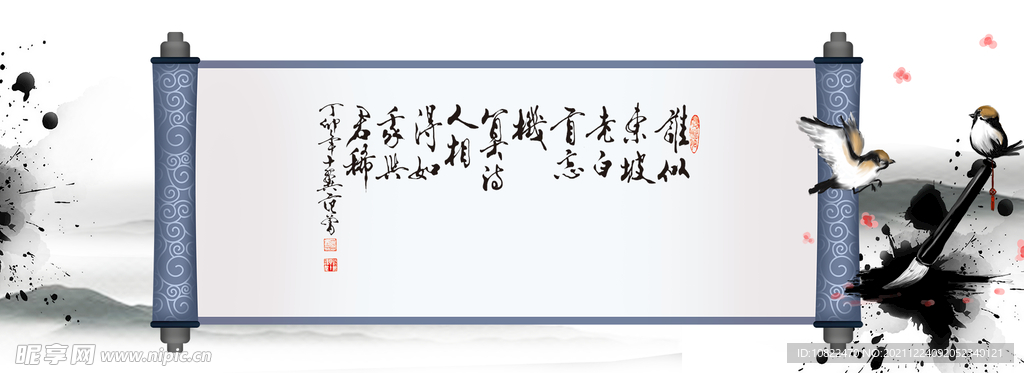 誰似
東坡
老白
首忘
機
算詩
人相
得如
我與
君稀
丁卯年十翼范曾
昵享网 www.nipic.cn
ID:10822470 NO:20211224092052340121